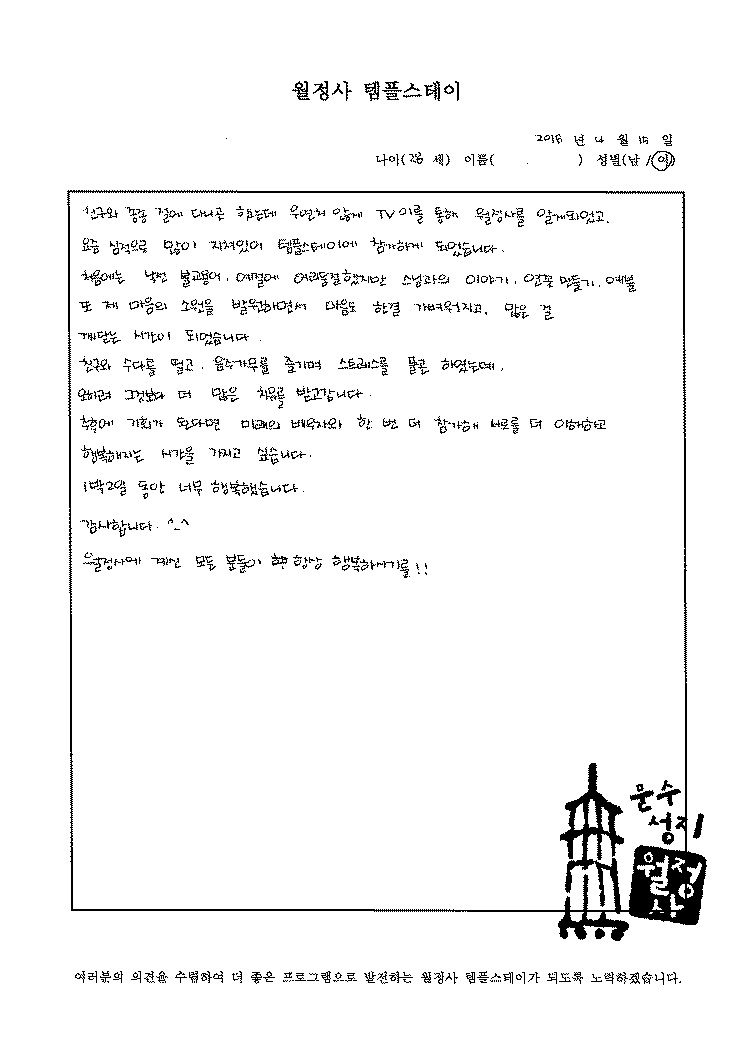 월정사 템플스테이
2016 년 4 월 17 일
나이(28 세) 이름( ) 성별(남/여)
친구와 종종 절에 다니곤 했는데 우연치 않게 TV 이를 통해 월정사를 알게되었고,
요즘 심적으로 많이 지쳐있어 템플스테이에 참가하게 되었습니다.
처음에는 낯선 불교용어, 예절에 어리둥절했지만 스님과의 이야기, 연꽃 만들기, 예불
또 제 마음의 소원을 발원하면서 마음도 한결 가벼워지고, 많은 걸
깨닫는 시간이 되었습니다.
친구와 수다를 떨고, 음주가무를 즐기며 스트레스를 풀곤 하였는데,
오히려 그것보다 더 많은 치유를 받고갑니다.
추후에 기회가 된다면 미래의 배우자와 한 번 더 참가해 서로를 더 이해하고
행복해지는 시간을 가지고 싶습니다.
1박2일 동안 너무 행복했습니다.
감사합니다. ^_^
월정사에 계신 모든 분들이 항상 행복하시기를!!
문수
성지
월정
사
여러분의 의견을 수렴하여 더 좋은 프로그램으로 발전하는 월정사 템플스테이가 되도록 노력하겠습니다.